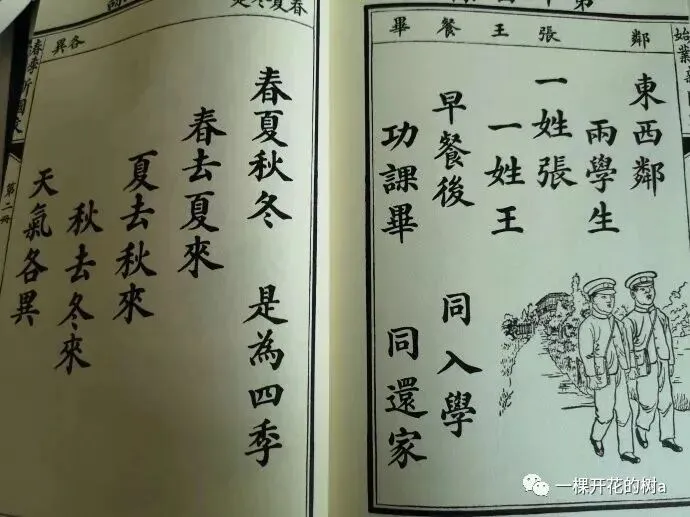 鄰 張 王 餐 畢
東西鄰
兩學生
一姓張
一姓王
早餐後 同入學
功課畢 同還家
各異
春夏秋冬 是為四季
春去夏來
夏去秋來
秋去冬來
天氣各異
第二冊
一棵开花的树a